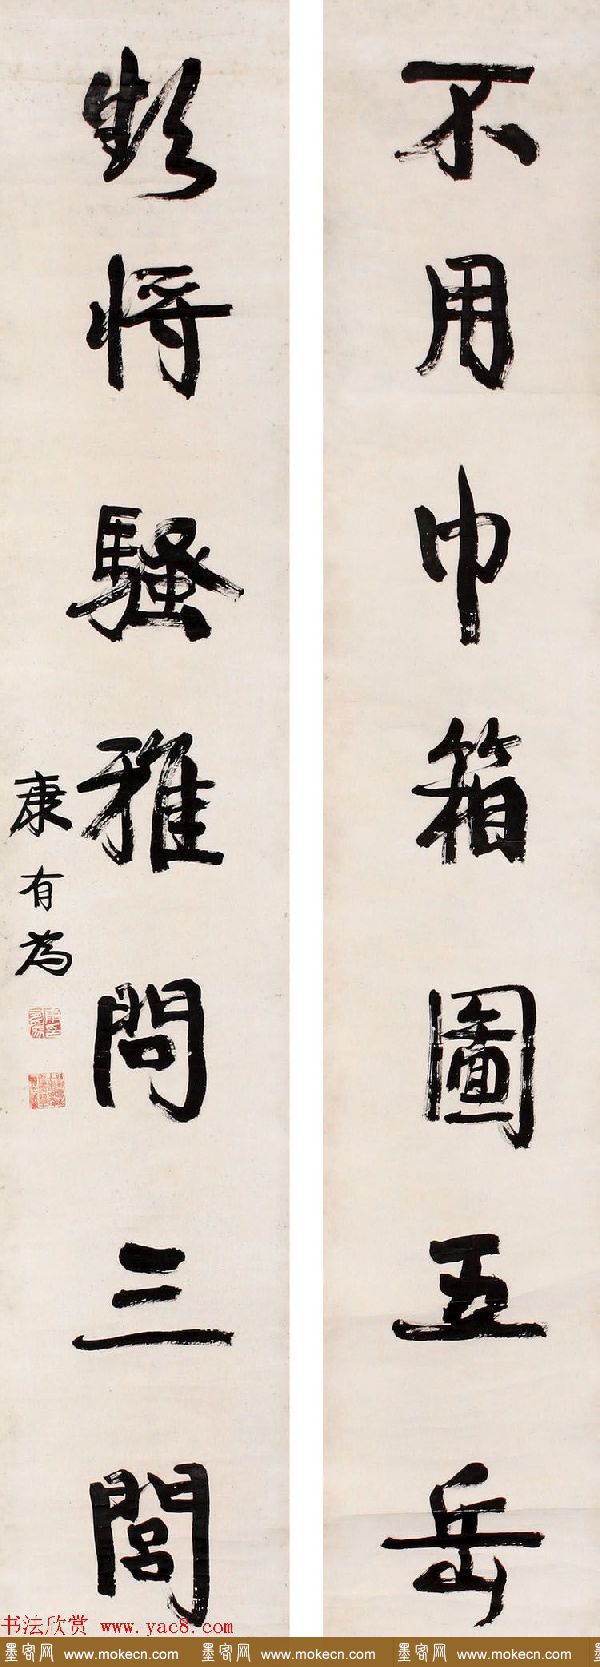 不用巾箱圖五岳
將騷雅問三閭
康有為
书法欣赏 www.yac8.com
墨客网 www.mokecn.com 墨客网 www.mokecn.com 墨客网 www.mokecn.com